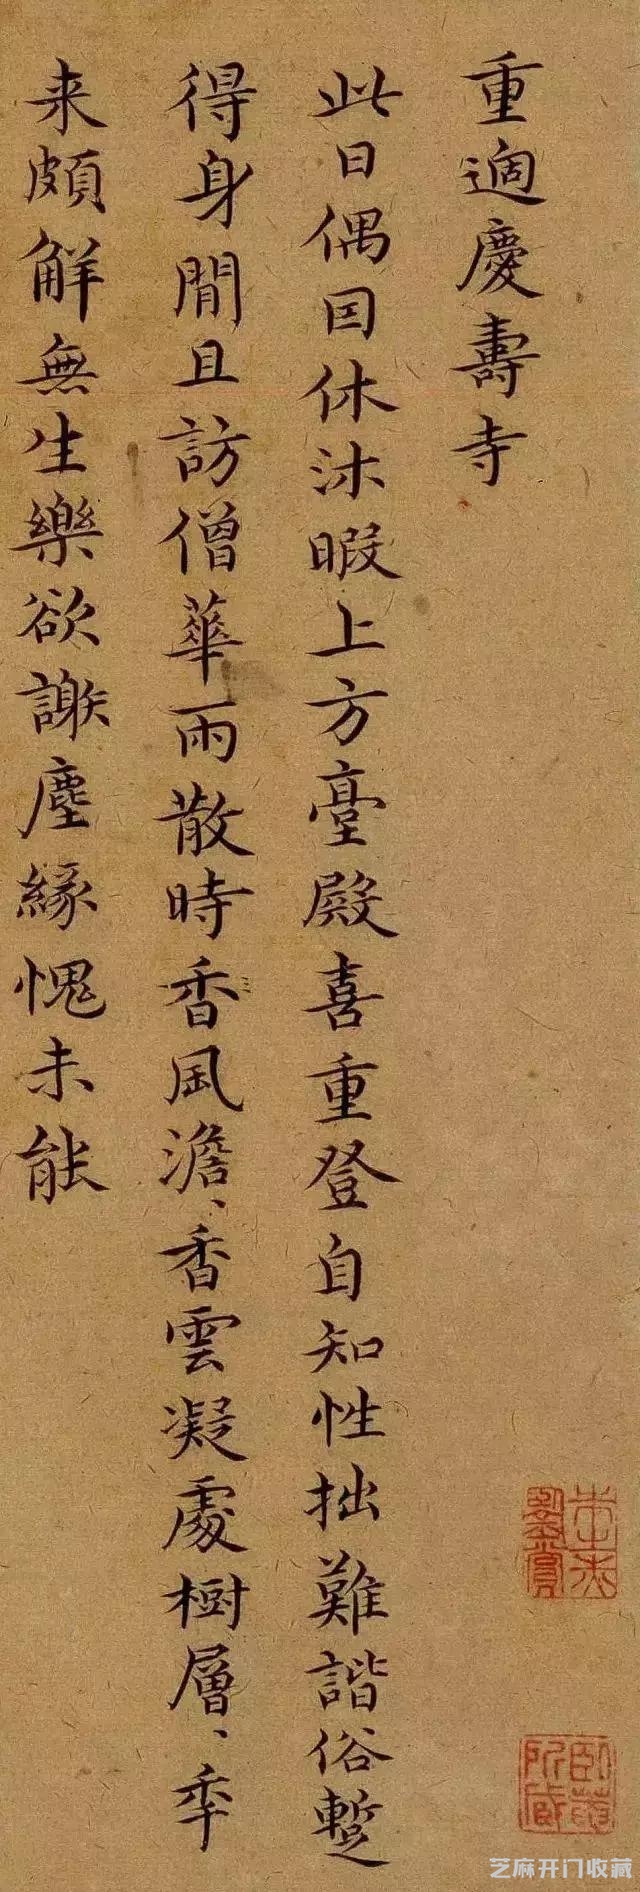 重過慶壽寺
此日偶囙休沐暇上方臺殿喜重登自知性拙難諧俗暫
得身閒且訪僧華雨散時香風澹、香雲凝處樹層、年
来頗解無生樂欲謝塵緣愧未能
朱之赤鑒賞
卧菴所藏
芝麻开门收藏